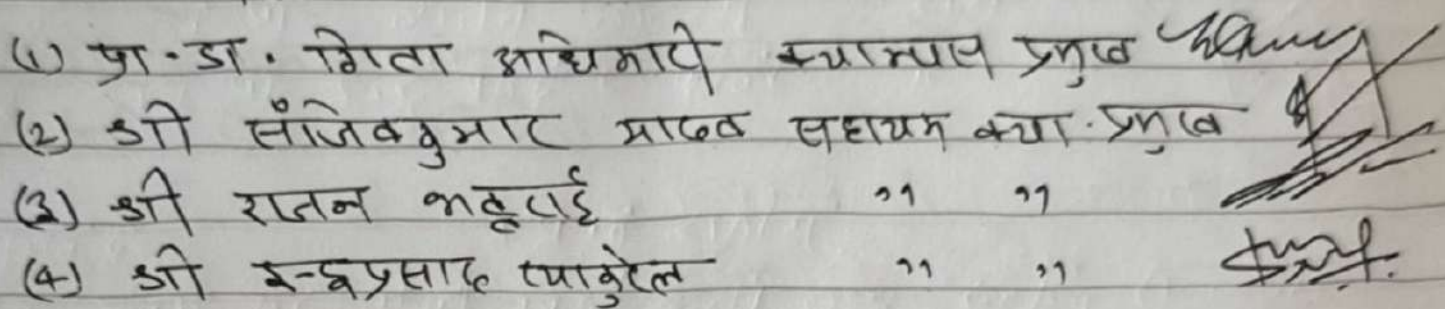 (1) प्रा. डा. गिता अधिकारी क्याम्पस प्रमुख
(2) श्री संजिवकुमार यादव सहायक क्या. प्रमुख
(3) श्री राजन भट्टराई " "
(4) श्री इन्द्रप्रसाद प्याकुरेल " "